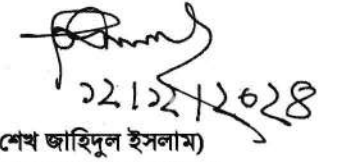 ১২|১২|২০২৪
(শেখ জাহিদুল ইসলাম)